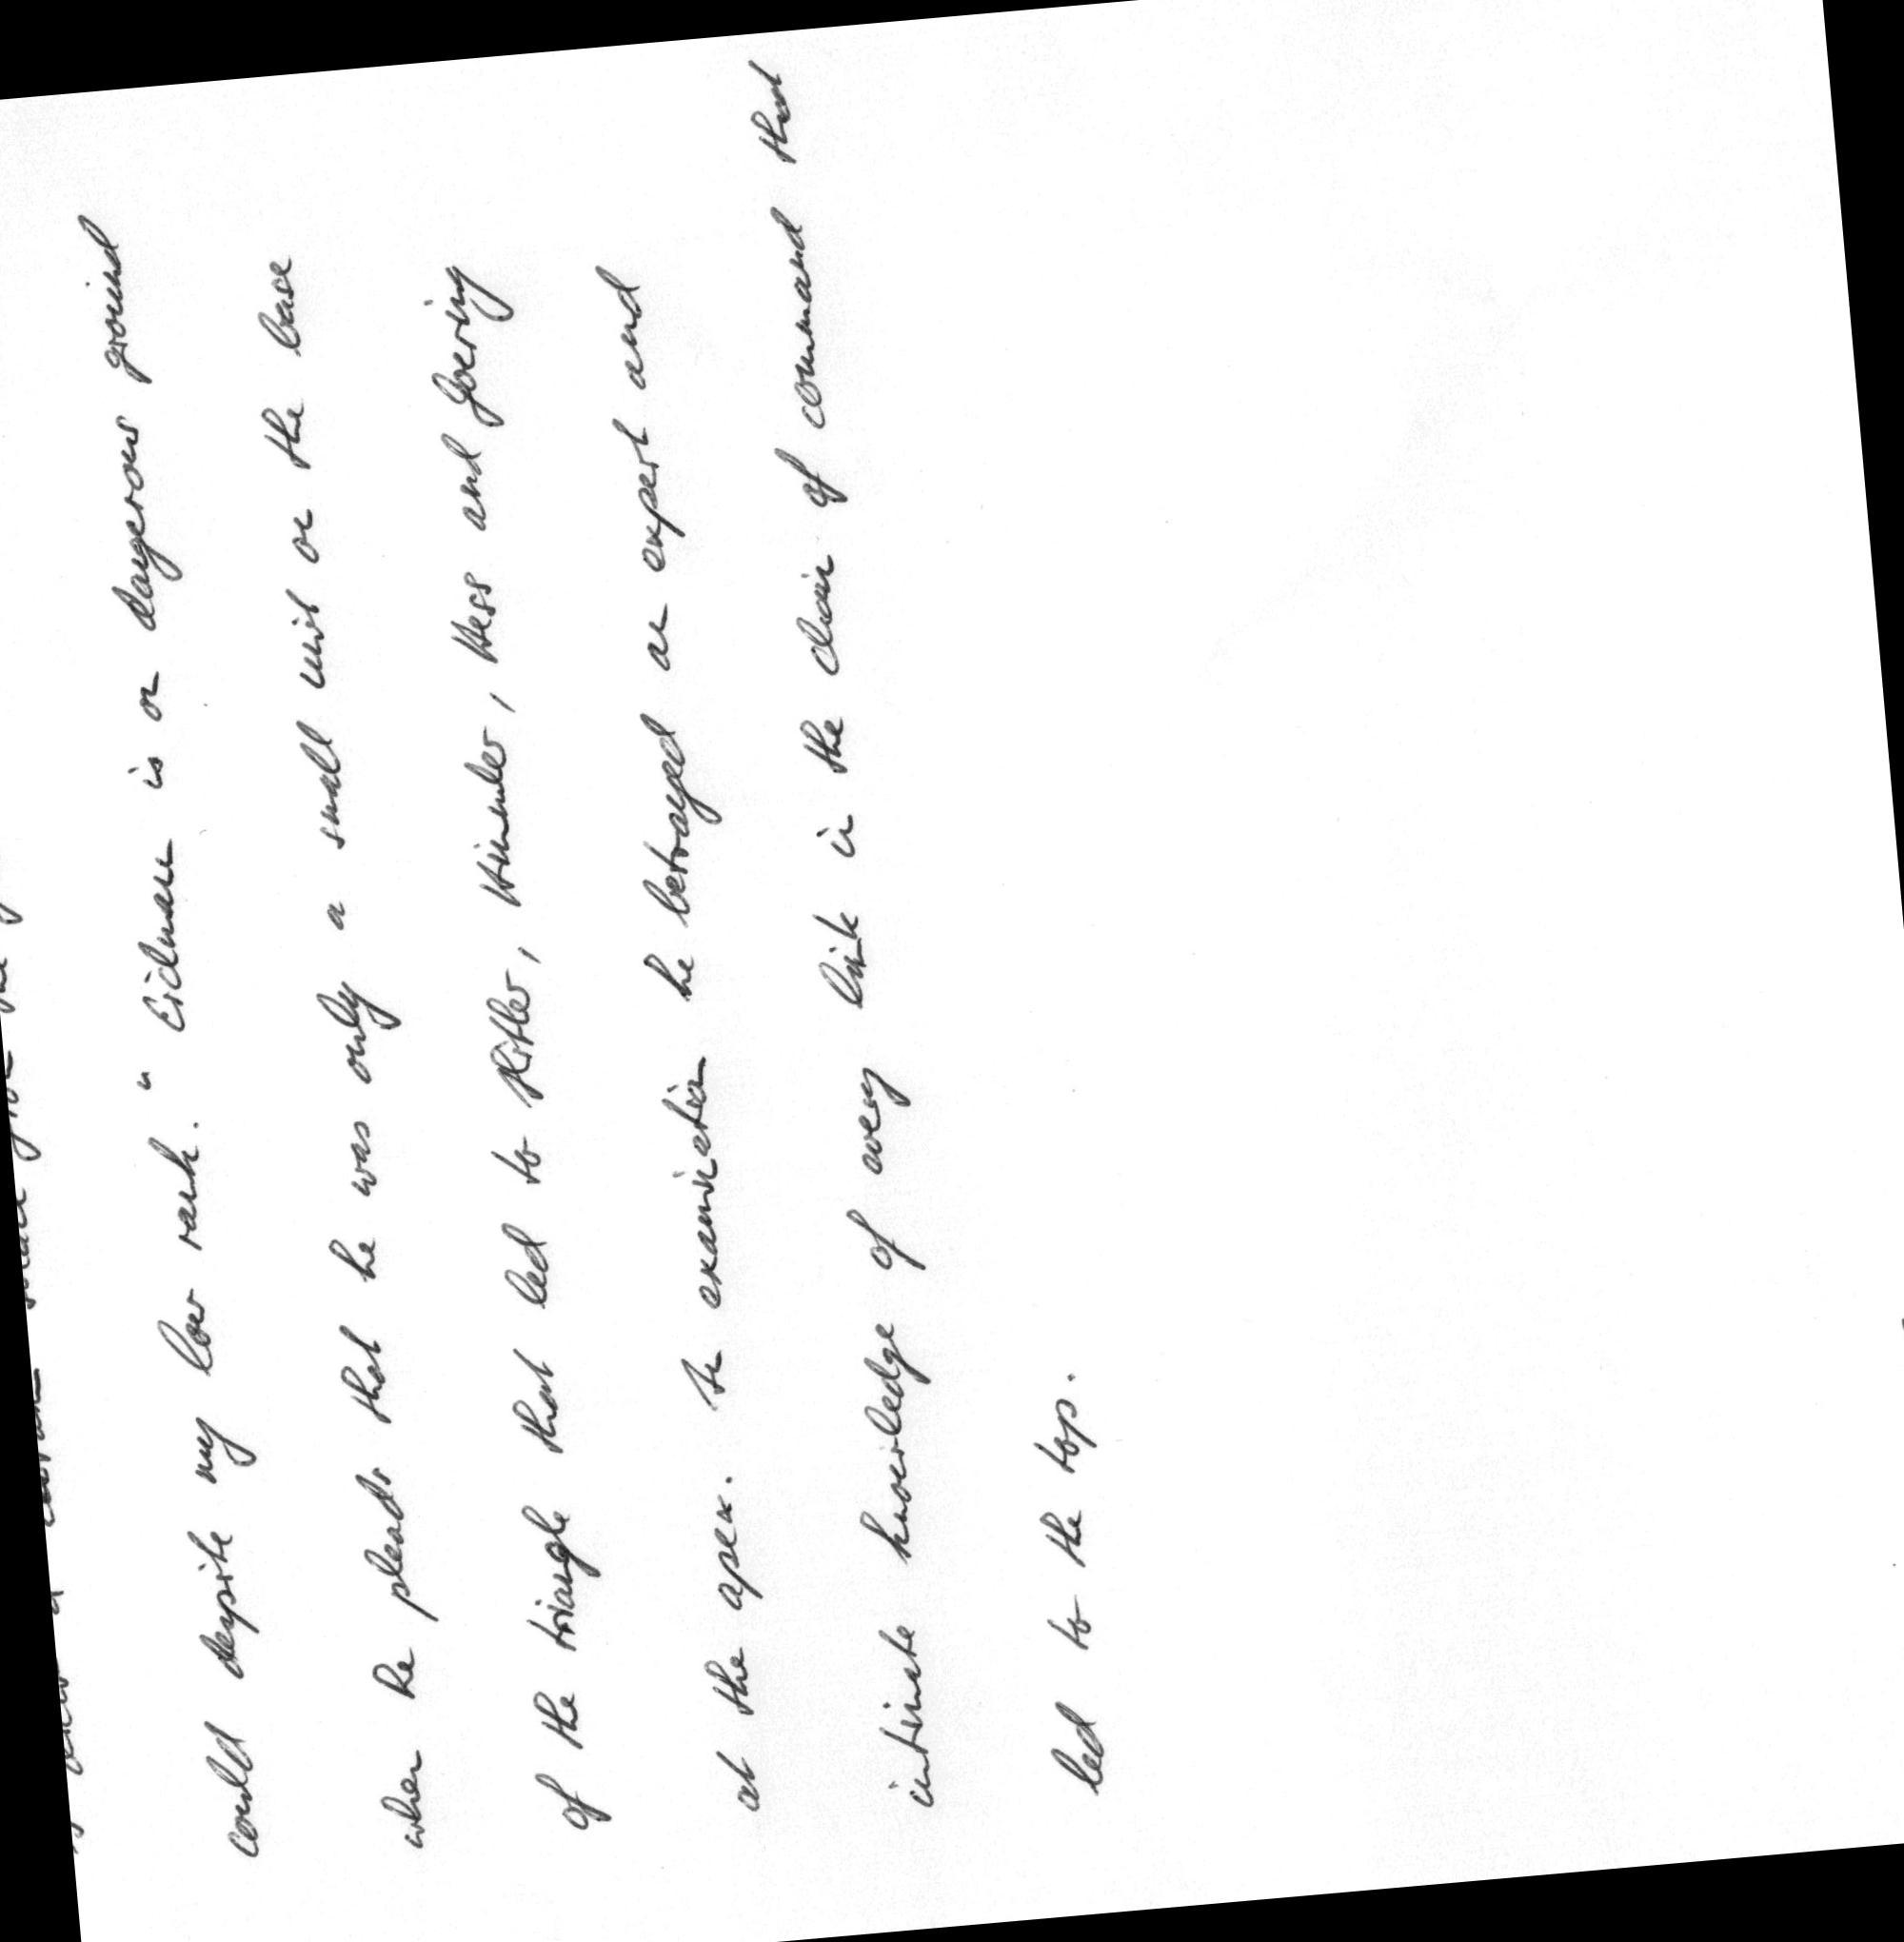 could despite my low rank." Eichmann is on dangerous ground
when he pleads that he was only a small unit on the base
of the triangle that led to Hitler, Himmler, Hess and Goering
at the apex. In examination he betrayed an expert and
intimate knowledge of every link in the chain of command that
led to the top.